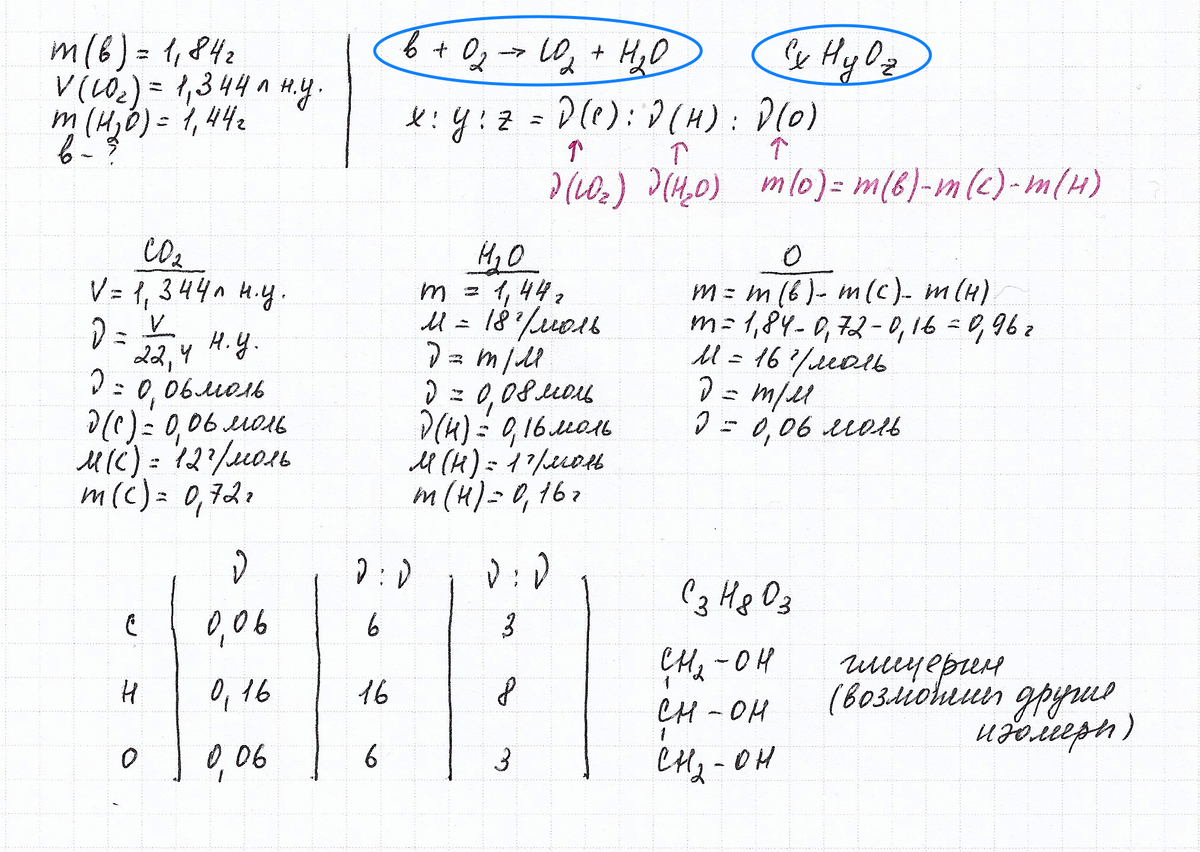 m(в) = 1,84г
V(CO₂) = 1,344л н.у.
m(H₂O) = 1,44г
в - ?
в + O₂ → CO₂ + H₂O
CxHyOz
x : y : z = ν(C) : ν(H) : ν(O)
↑ ↑ ↑
ν(CO₂) ν(H₂O) m(O) = m(в) - m(C) - m(H)
CO₂
V = 1,344л н.у.
ν = V/22,4 н.у.
ν = 0,06 моль
ν(C) = 0,06 моль
M(C) = 12 г/моль
m(C) = 0,72г
H₂O
m = 1,44г
M = 18 г/моль
ν = m/M
ν = 0,08 моль
ν(H) = 0,16 моль
M(H) = 1 г/моль
m(H) = 0,16г
O
m = m(в) - m(C) - m(H)
m = 1,84 - 0,72 - 0,16 = 0,96г
M = 16 г/моль
ν = m/M
ν = 0,06 моль
ν ν : ν ν : ν
C 0,06 6 3
H 0,16 16 8
O 0,06 6 3
C₃H₈O₃
CH₂ - OH
CH - OH
CH₂ - OH
глицерин
(возможны другие
изомеры)